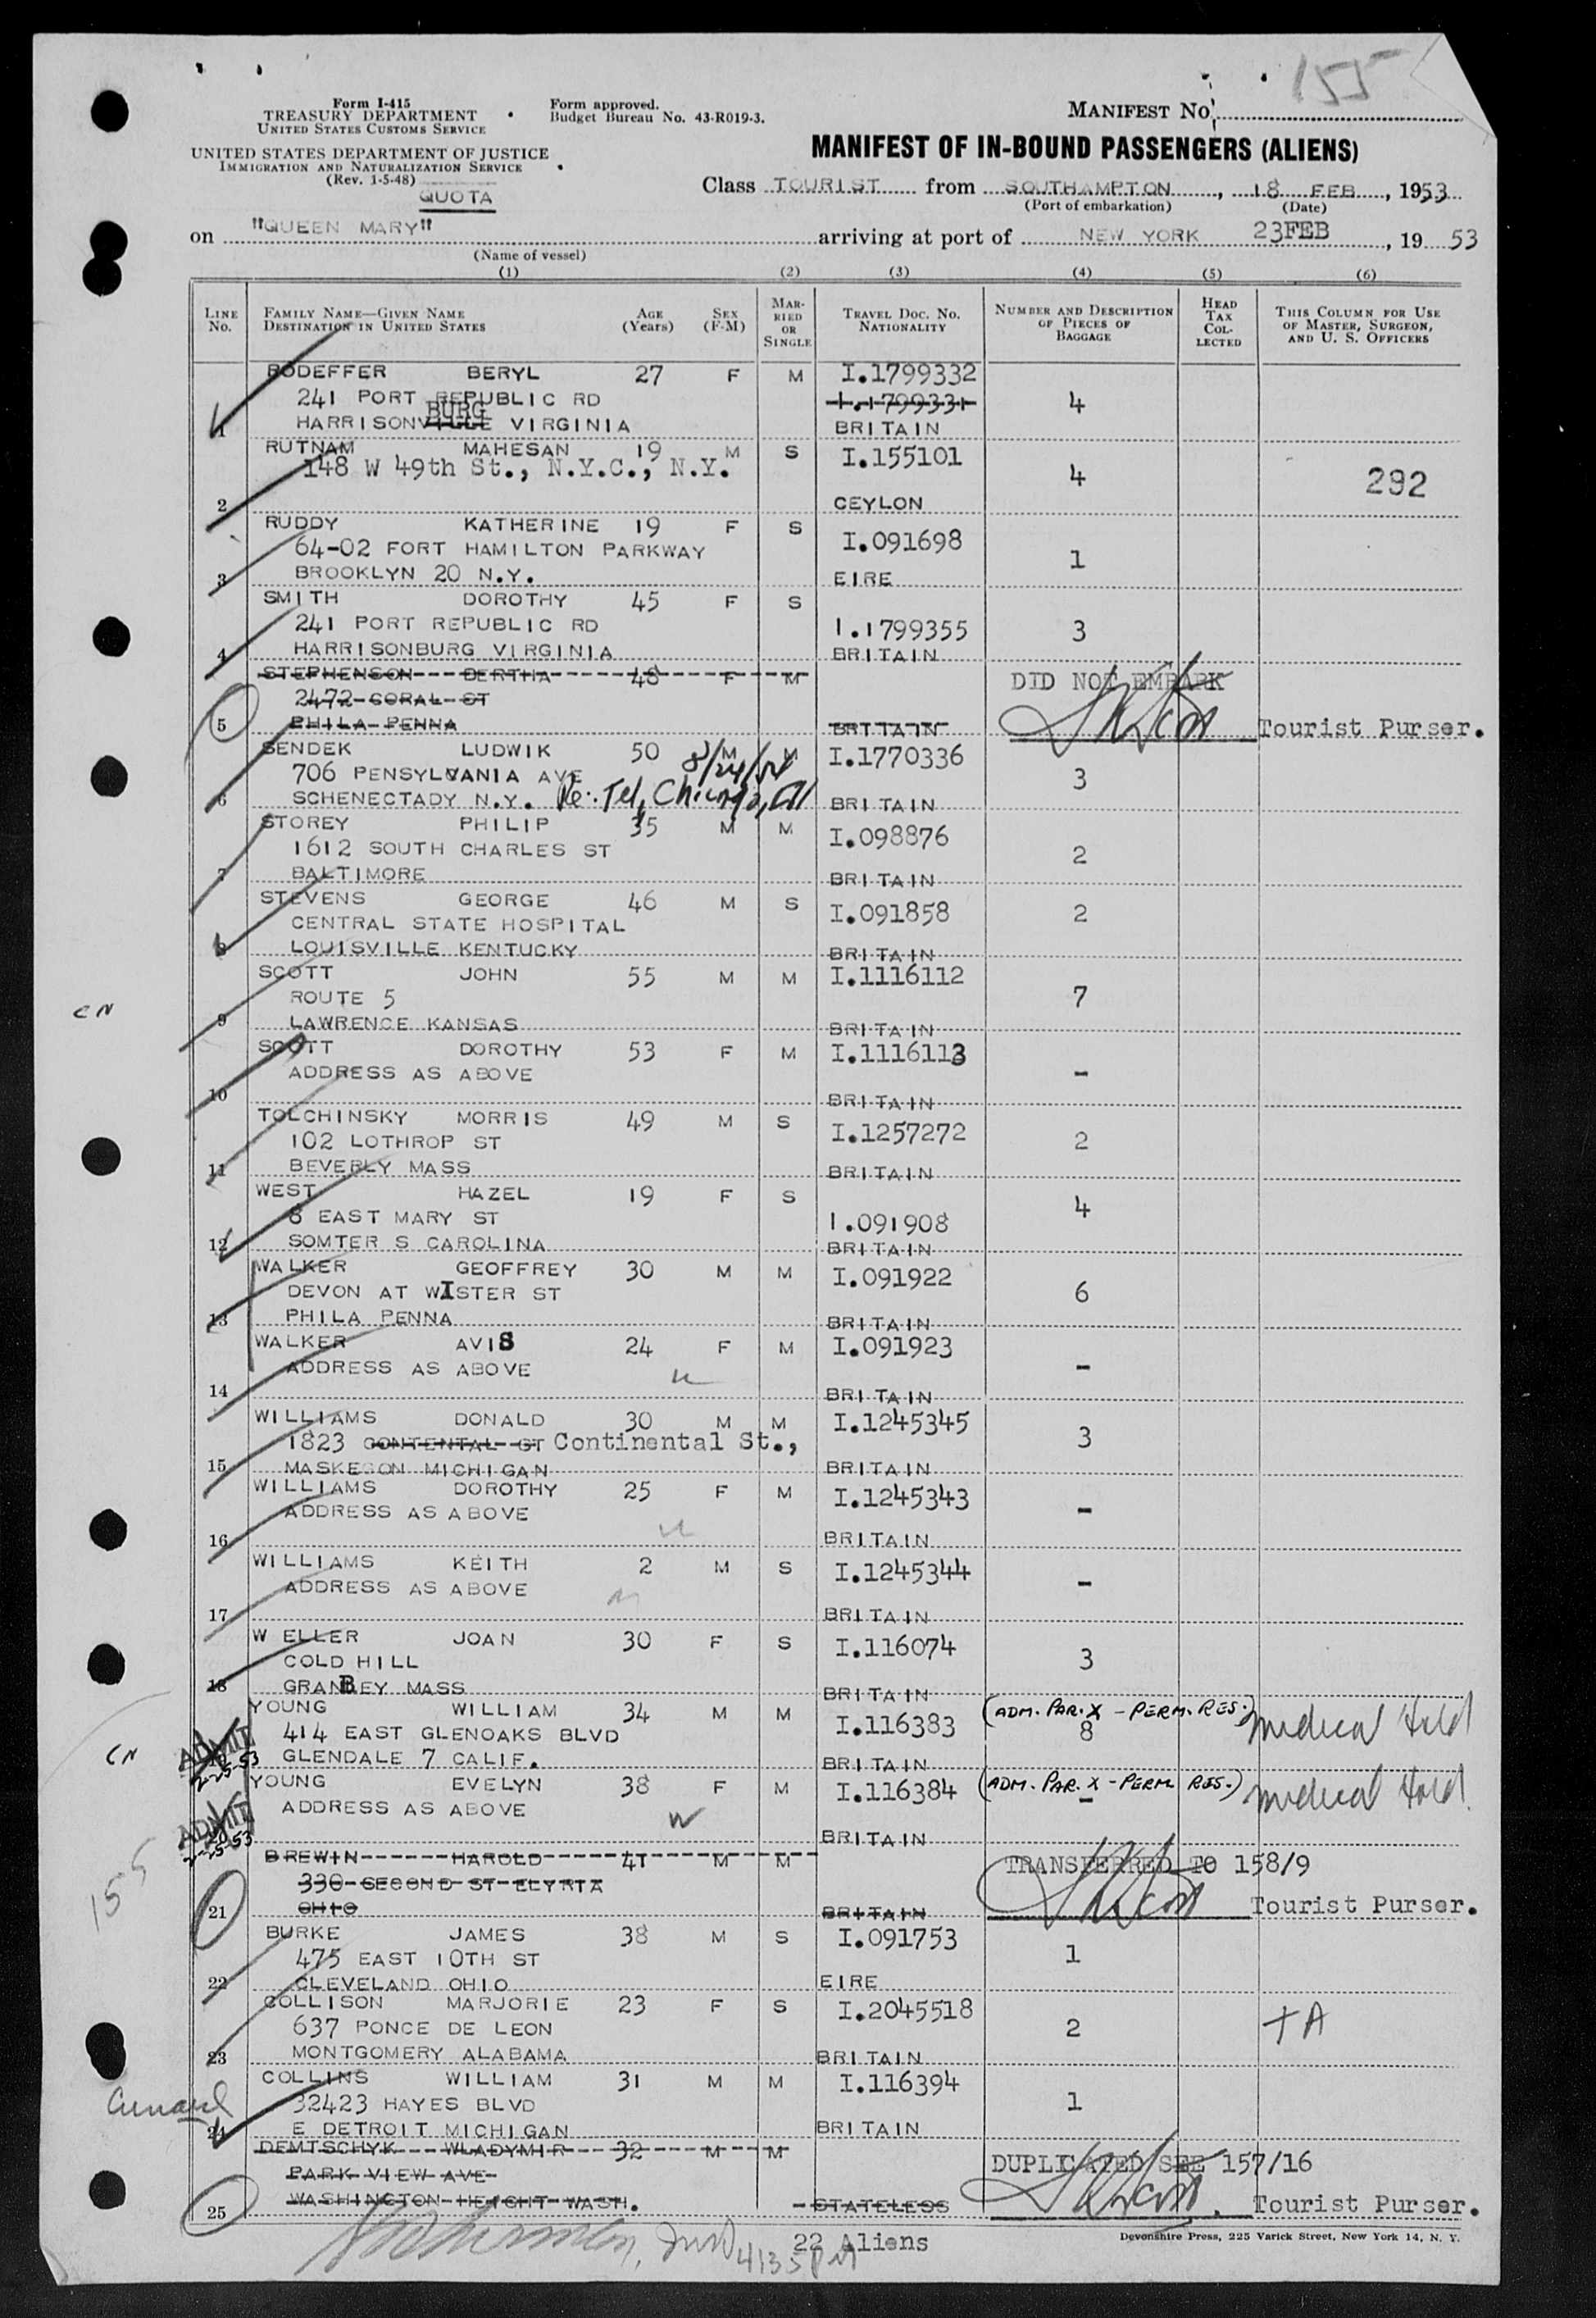 155
Form I-415
TREASURY DEPARTMENT
UNITED STATES CUSTOMS SERVICE
Form approved.
Budget Bureau No. 43-R019-3.
MANIFEST No.
UNITED STATES DEPARTMENT OF JUSTICE
IMMIGRATION AND NATURALIZATION SERVICE
(Rev. 1-5-48)
QUOTA
MANIFEST OF IN-BOUND PASSENGERS (ALIENS)
Class TOURIST from SOUTHAMPTON, 18 FEB, 1953
(Port of embarkation) (Date)
on "QUEEN MARY" arriving at port of NEW YORK 23FEB, 19 53
(Name of vessel)
(1) (2) (3) (4) (5) (6)
LINE No. FAMILY NAME—GIVEN NAME DESTINATION IN UNITED STATES AGE (Years) SEX (F-M) MARRIED OR SINGLE TRAVEL DOC. No. NATIONALITY NUMBER AND DESCRIPTION OF PIECES OF BAGGAGE HEAD TAX COLLECTED THIS COLUMN FOR USE OF MASTER, SURGEON, AND U. S. OFFICERS
BODEFFER BERYL 27 F M I.1799332
241 PORT REPUBLIC RD I.1799331 4
BURG
1 HARRISONVILLE VIRGINIA BRITAIN
RUTNAM MAHESAN 19 M S I.155101
148 W 49th St., N.Y.C., N.Y. 4 292
2 CEYLON
RUDDY KATHERINE 19 F S I.091698
64-02 FORT HAMILTON PARKWAY 1
3 BROOKLYN 20 N.Y. EIRE
SMITH DOROTHY 45 F S
241 PORT REPUBLIC RD I.1799355 3
4 HARRISONBURG VIRGINIA BRITAIN
STEPHENSON BERTHA 48 F M DID NOT EMBARK
2472 CORAL ST
5 PHILA PENNA BRITAIN Tourist Purser.
SENDEK LUDWIK 50 M M I.1770336
8/24/54
706 PENSYLVANIA AVE 3
6 SCHENECTADY N.Y. Re: Tel, Chicago, Ill BRITAIN
STOREY PHILIP 35 M M I.098876
1612 SOUTH CHARLES ST 2
7 BALTIMORE BRITAIN
STEVENS GEORGE 46 M S I.091858 2
CENTRAL STATE HOSPITAL
8 LOUISVILLE KENTUCKY BRITAIN
SCOTT JOHN 55 M M I.1116112
CN ROUTE 5 7
9 LAWRENCE KANSAS BRITAIN
SCOTT DOROTHY 53 F M I.1116113
ADDRESS AS ABOVE -
10 BRITAIN
TOLCHINSKY MORRIS 49 M S I.1257272
102 LOTHROP ST 2
11 BEVERLY MASS BRITAIN
WEST HAZEL 19 F S
8 EAST MARY ST I.091908 4
12 SOMTER S CAROLINA BRITAIN
WALKER GEOFFREY 30 M M I.091922
DEVON AT WISTER ST 6
13 PHILA PENNA BRITAIN
WALKER AVIS 24 F M I.091923
ADDRESS AS ABOVE -
14 BRITAIN
WILLIAMS DONALD 30 M M I.1245345
1823 CONTENTAL ST Continental St., 3
15 MASKEGON MICHIGAN BRITAIN
WILLIAMS DOROTHY 25 F M I.1245343
ADDRESS AS ABOVE -
16 BRITAIN
WILLIAMS KEITH 2 M S I.1245344
ADDRESS AS ABOVE -
17 BRITAIN
W ELLER JOAN 30 F S I.116074
COLD HILL 3
18 GRANBEY MASS BRITAIN
YOUNG WILLIAM 34 M M I.116383 (ADM. PAR. X - PERM. RES.) Medical Hold
CN ADMIT 414 EAST GLENOAKS BLVD 8
2-25-53 19 GLENDALE 7 CALIF. BRITAIN
YOUNG EVELYN 38 F M I.116384 (ADM. PAR. X - PERM. RES.) Medical Hold
ADMIT ADDRESS AS ABOVE -
2-25-53 20 BRITAIN
BREWIN HAROLD 41 M M TRANSFERRED TO 158/9
155 330 SECOND ST ELYRIA
21 OHIO BRITAIN Tourist Purser.
BURKE JAMES 38 M S I.091753
475 EAST 10TH ST 1
22 CLEVELAND OHIO EIRE
COLLISON MARJORIE 23 F S I.2045518
637 PONCE DE LEON 2 TA
23 MONTGOMERY ALABAMA BRITAIN
COLLINS WILLIAM 31 M M I.116394
Cunard 32423 HAYES BLVD 1
24 E DETROIT MICHIGAN BRITAIN
DEMTSCHYK WLADYMIR 32 M M DUPLICATED SEE 157/16
PARK VIEW AVE
25 WASHINGTON HEIGHT WASH. STATELESS Tourist Purser.
22 Aliens
Devonshire Press, 225 Varick Street, New York 14, N. Y.